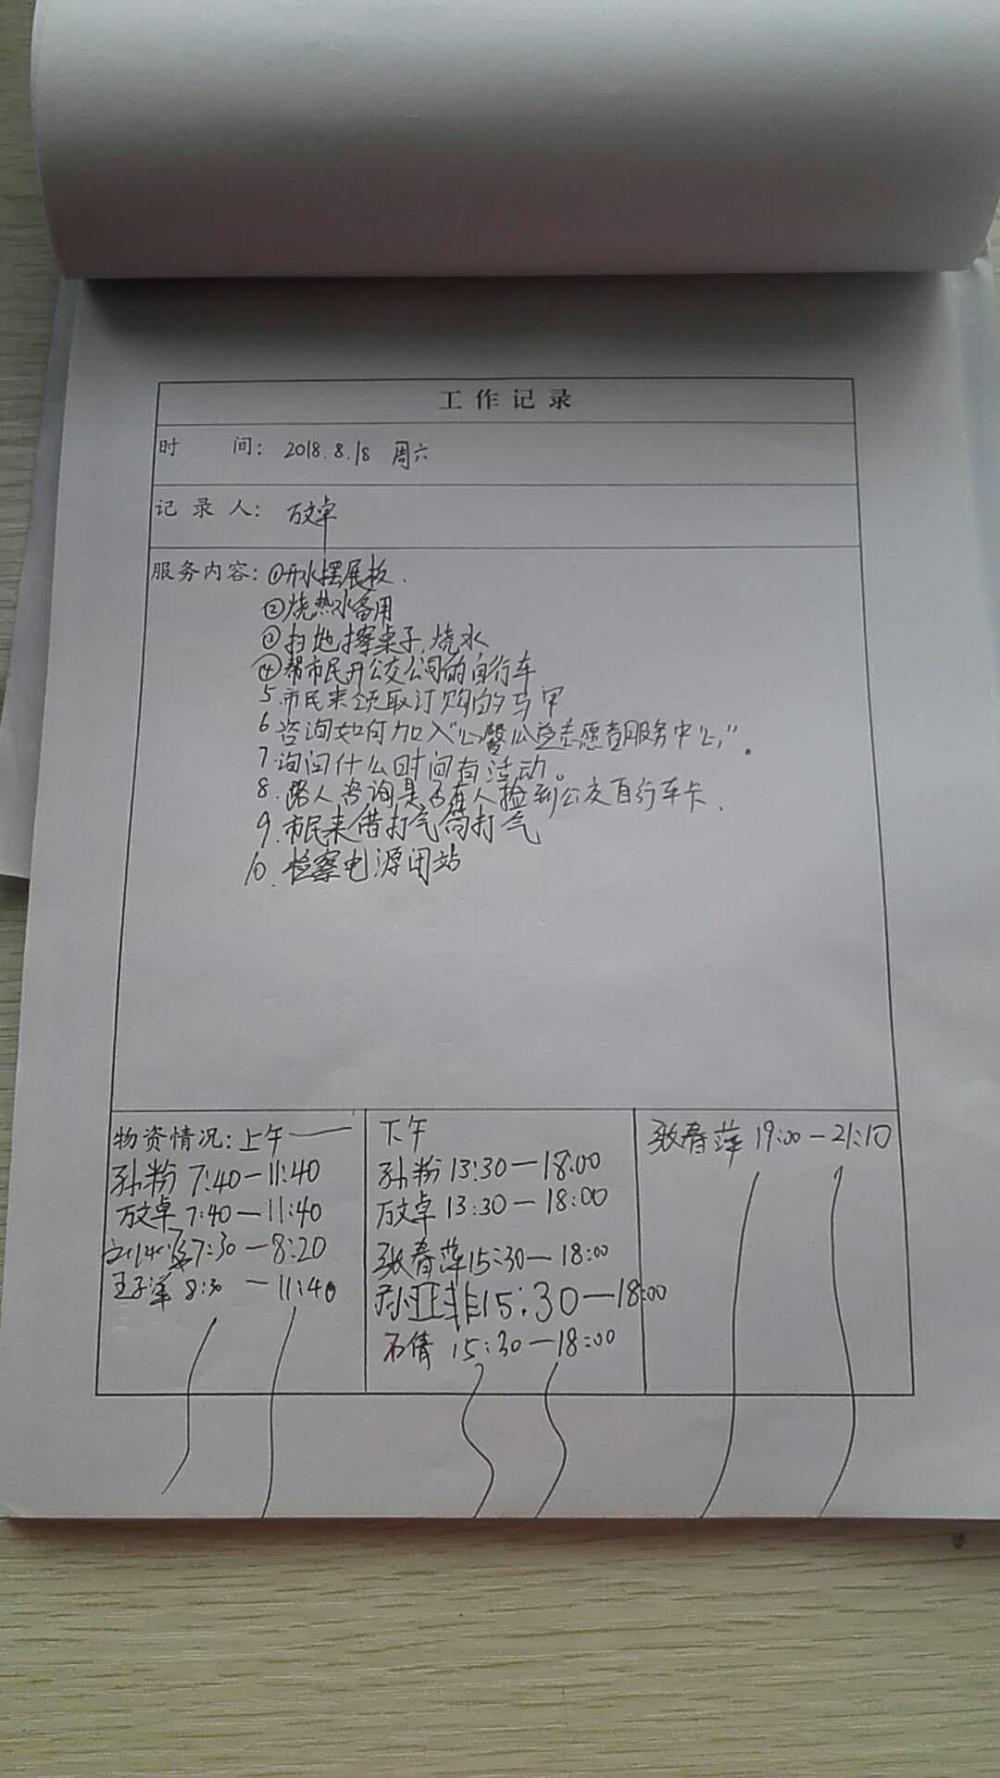 工作记录
时 间: 2018.8.18 周六
记录人: 万文卓
服务内容: ①开水摆展板.
②烧热水备用
③扫地擦桌子,烧水
④帮市民开公交公司的自行车
5.市民来领取订购的马甲
6.咨询如何加入“心馨公益志愿者服务中心”.
7.询问什么时间有活动。
8.路人咨询是否有人捡到公交自行车卡.
9.市民来借打气筒打气
10.检察电源闭站
物资情况:上午
孙粉 7:40—11:40
万文卓 7:40—11:40
7:30—8:20
王子洋 8:30—11:40
下午
孙粉 13:30—18:00
万文卓 13:30—18:00
张春萍 15:30—18:00
孙亚非 15:30—18:00
石倩 15:30—18:00
张春萍 19:00—21:10